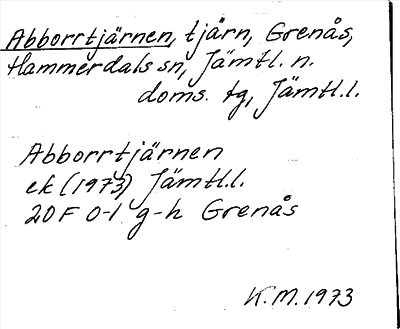 Abborrtjärnen, tjärn, Grenås,
Hammerdals sn, Jämtl. n.
doms. tg, Jämtl.l.
Abborrtjärnen
ek (1973) Jämtl.l.
20F 0-1 g-h Grenås
K.M. 1973